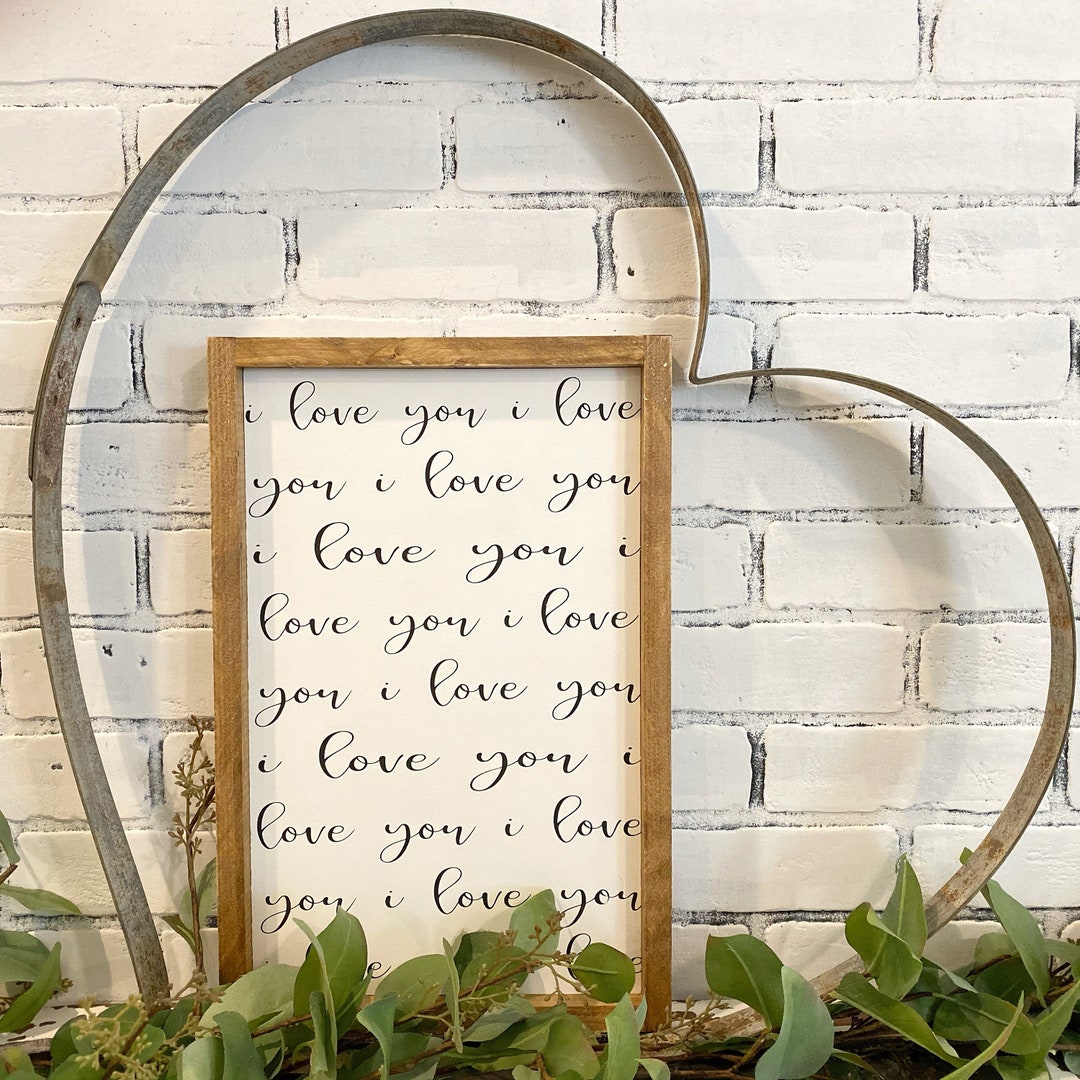 i love you i love
you i love you
i love you i
love you i love
you i love you
i love you i
love you i love
you i love you